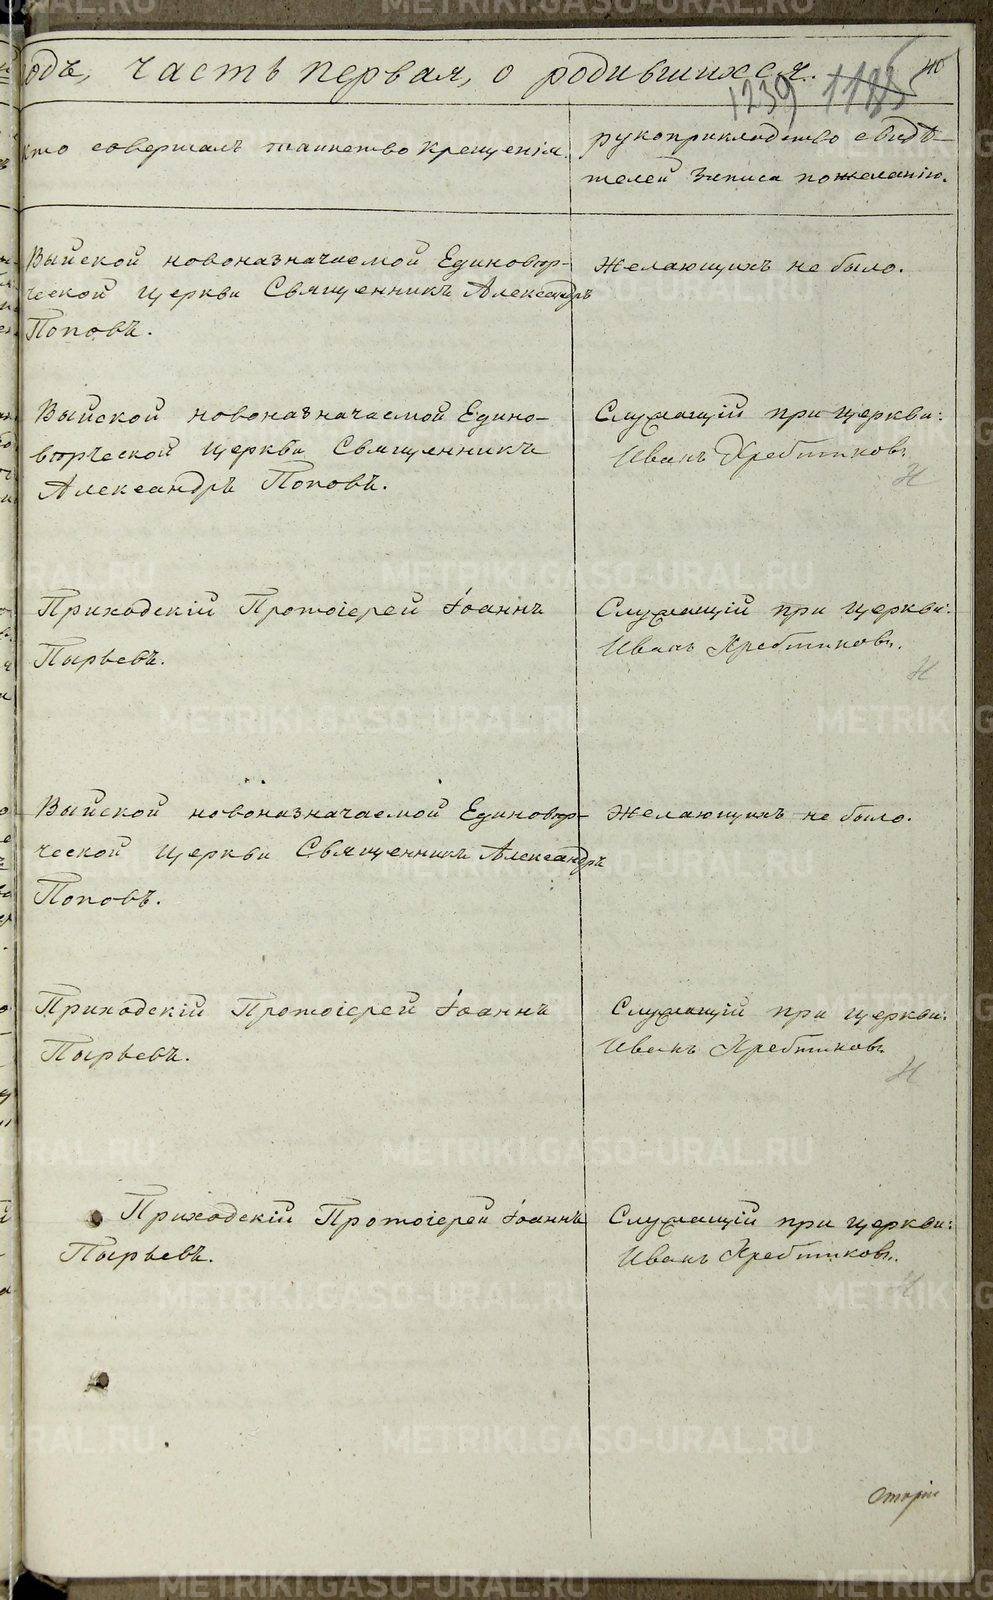 одѣ, часть первая, о родившихся.
1239 1185
кто совершалъ таинство крещенія.
рукоприкладство свидѣ-
телей записи по желанію.
Выйской новоназначаемой Единовѣр-
ческой церкви Священникъ Александръ
Поповъ.
Желающихъ не было.
Выйской новоназначаемой Едино-
вѣрческой церкви Священникъ
Александръ Поповъ.
Служащій при церкви:
Иванъ Хребтиковъ
Приходскій Протоіерей Іоаннъ
Пырьевъ.
Служащій при церкви:
Иванъ Хребтиковъ.
Выйской новоназначаемой Единовѣр-
ческой церкви Священникъ Александръ
Поповъ.
Желающихъ не было.
Приходскій Протоіерей Іоаннъ
Пырьевъ.
Служащій при церкви:
Иванъ Хребтиковъ
Приходскій Протоіерей Іоаннъ
Пырьевъ.
Служащій при церкви:
Иванъ Хребтиковъ.
METRIKI.GASO-URAL.RU